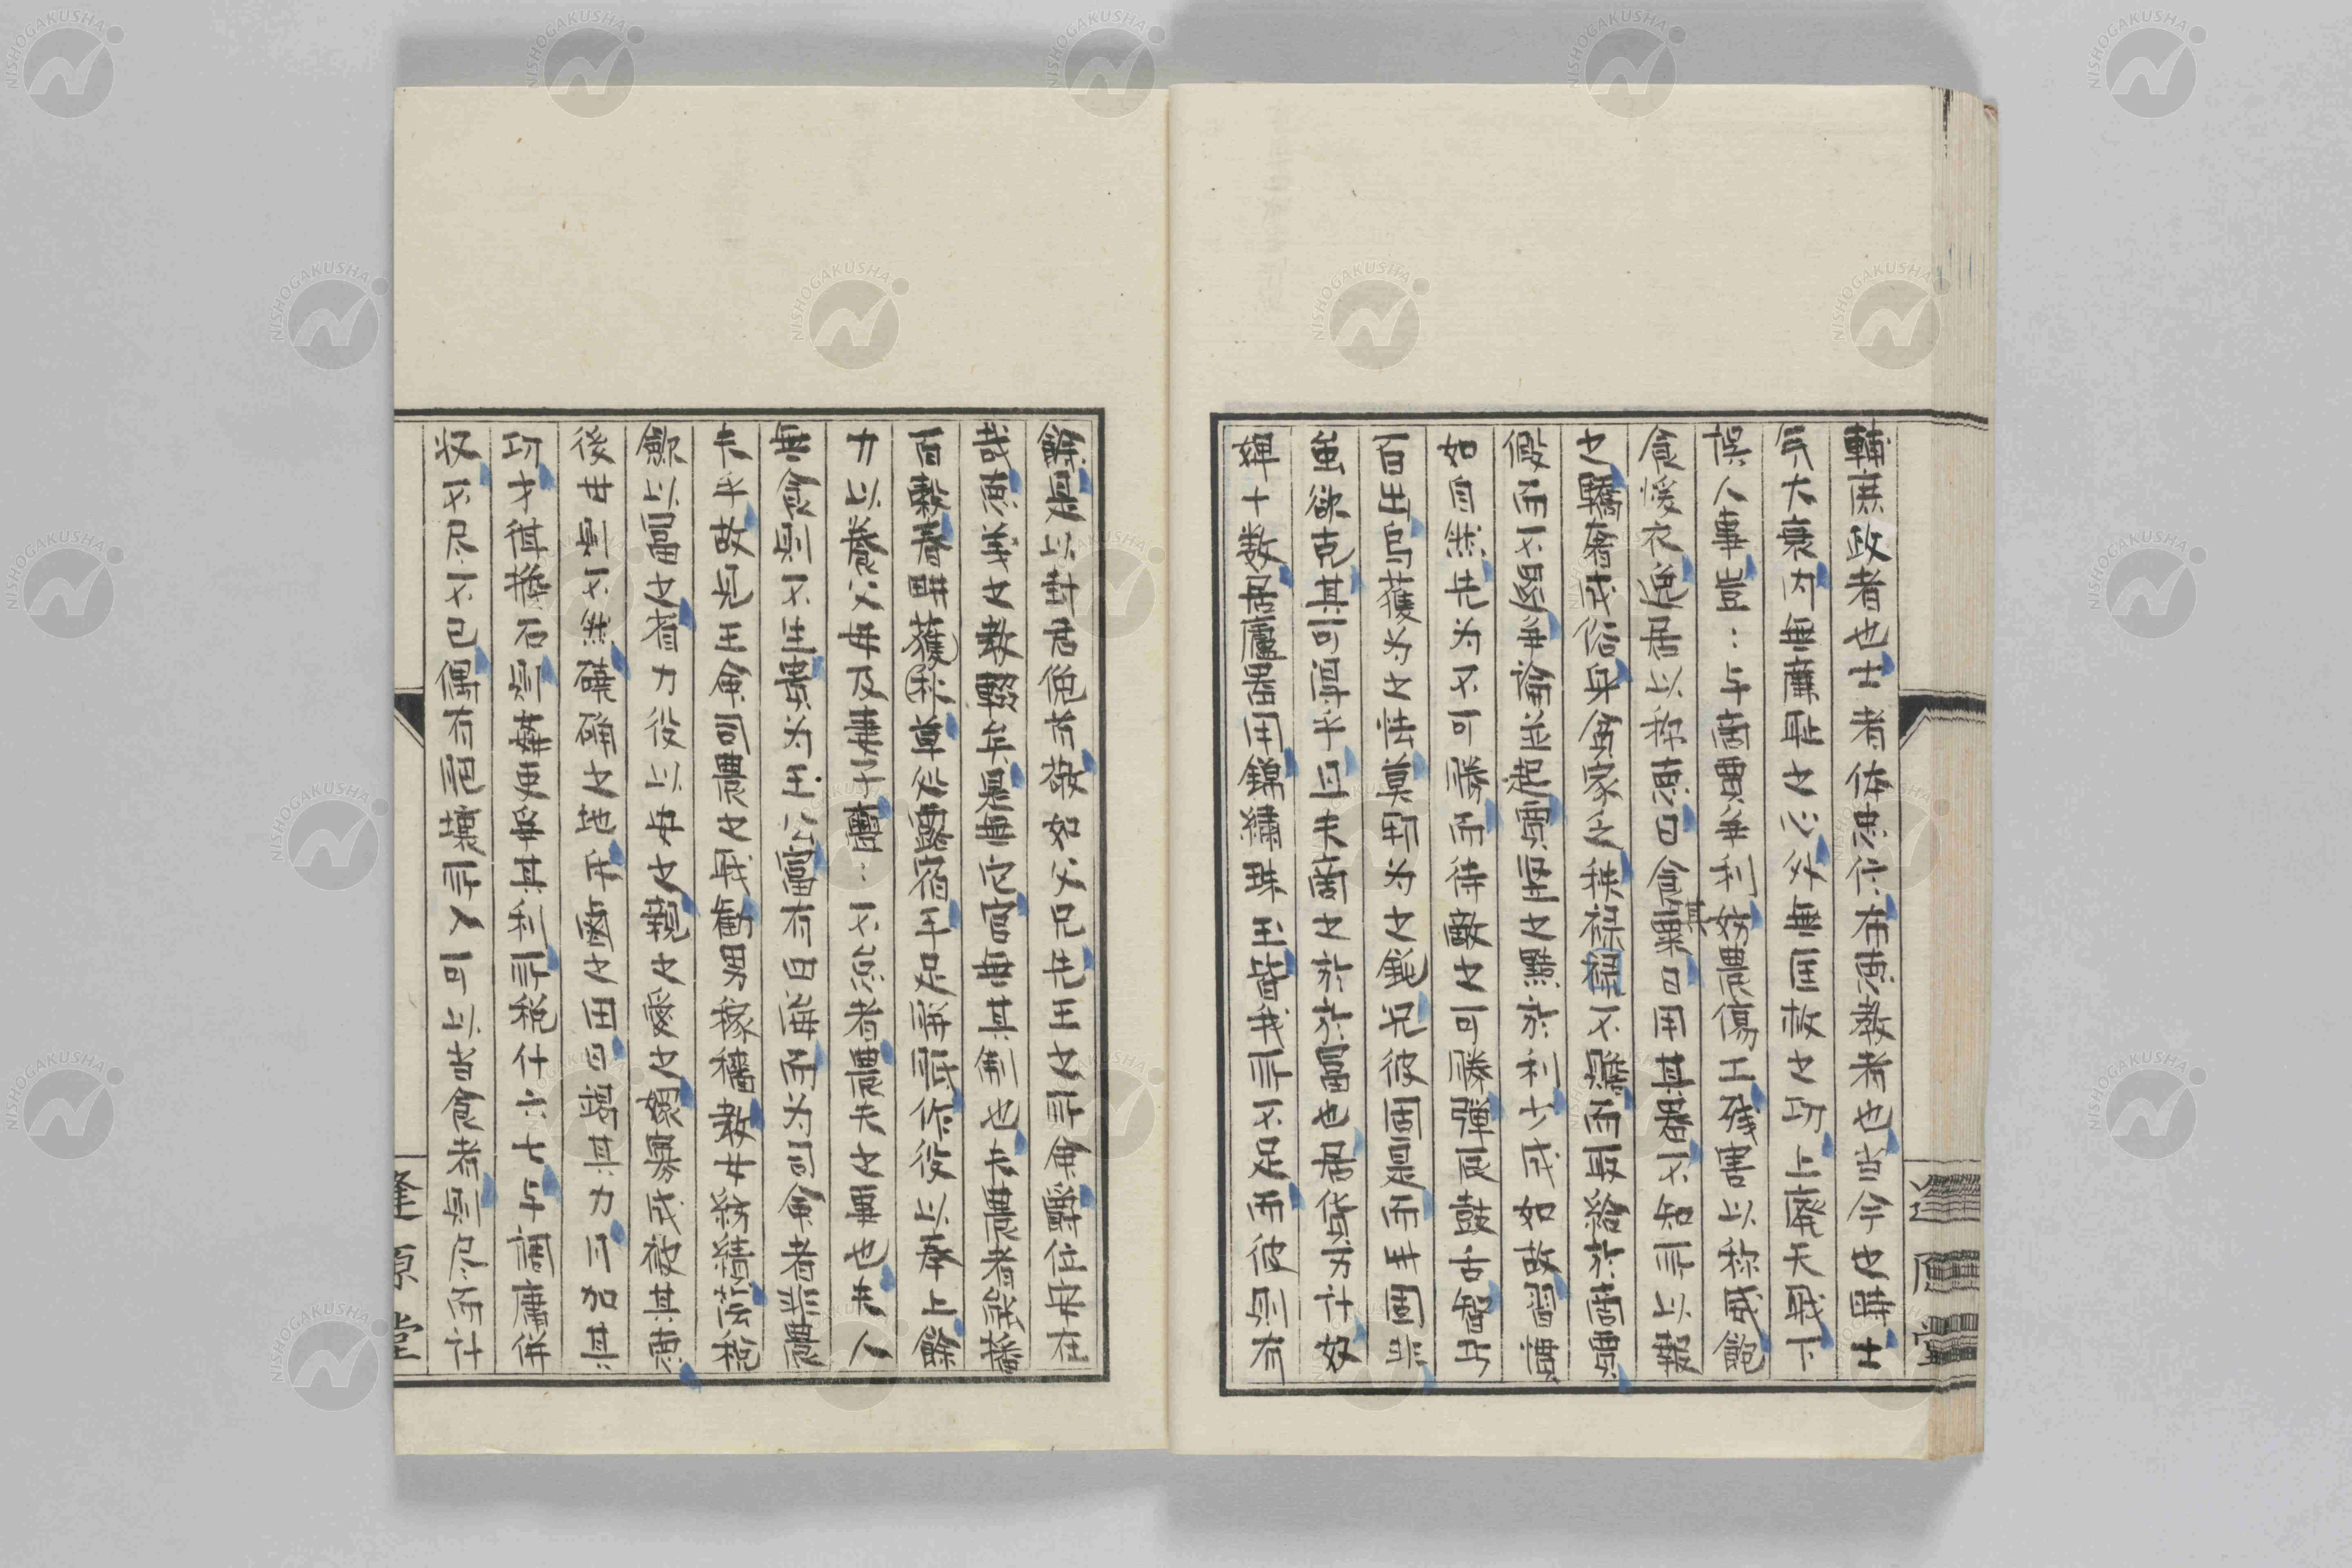 輔庶政者也士者佐忠位布恵教者也当今之時士
氏大衰内無廉恥之心外無匡救之功上廃天職下
誤人事豈〻与商賈争利妨農傷工残害以称威飽
食煖衣逸居以称恵日食其粟日用其器不知所以報
之驕奢成俗身貧家乏秩禄禄不贍而取給於商賈
假而不帰争論並起賈豎之黠於利少成如故習慣
如自然先为不可勝而待敵之可勝弾唇鼓舌智巧
百出烏獲为之怯莫邪为之鈍况彼固是而我固非
虽欲克其可得乎且夫商之於富也居貨为计奴
婢十数居廬器用錦繍珠玉皆我所不足而彼則有
餘是以对君侮慢敬如父兄先王之所無辞位安在
哉恵義之教熙矣是無它官無其制也夫農者歳播
百穀春耕穫秋草処露宿手足胼胝作役以奉上餘
力以養父母及妻子囂〻不怠者農夫之事也夫人
無食則不生貴为王公富有四海而为司命者非農
夫乎故先王命司農之職勧男稼穡教女紡績薄税
歛以富之省力役以安之親之愛之撫募成被其恵
後世則不然磽确之地斥鹵之田日竭其力月加其
功才得擔石則奸吏争其利所税什六七与調庸併
収不尽不已偶有肥壤所入可以当食者則尽而计
逢原堂